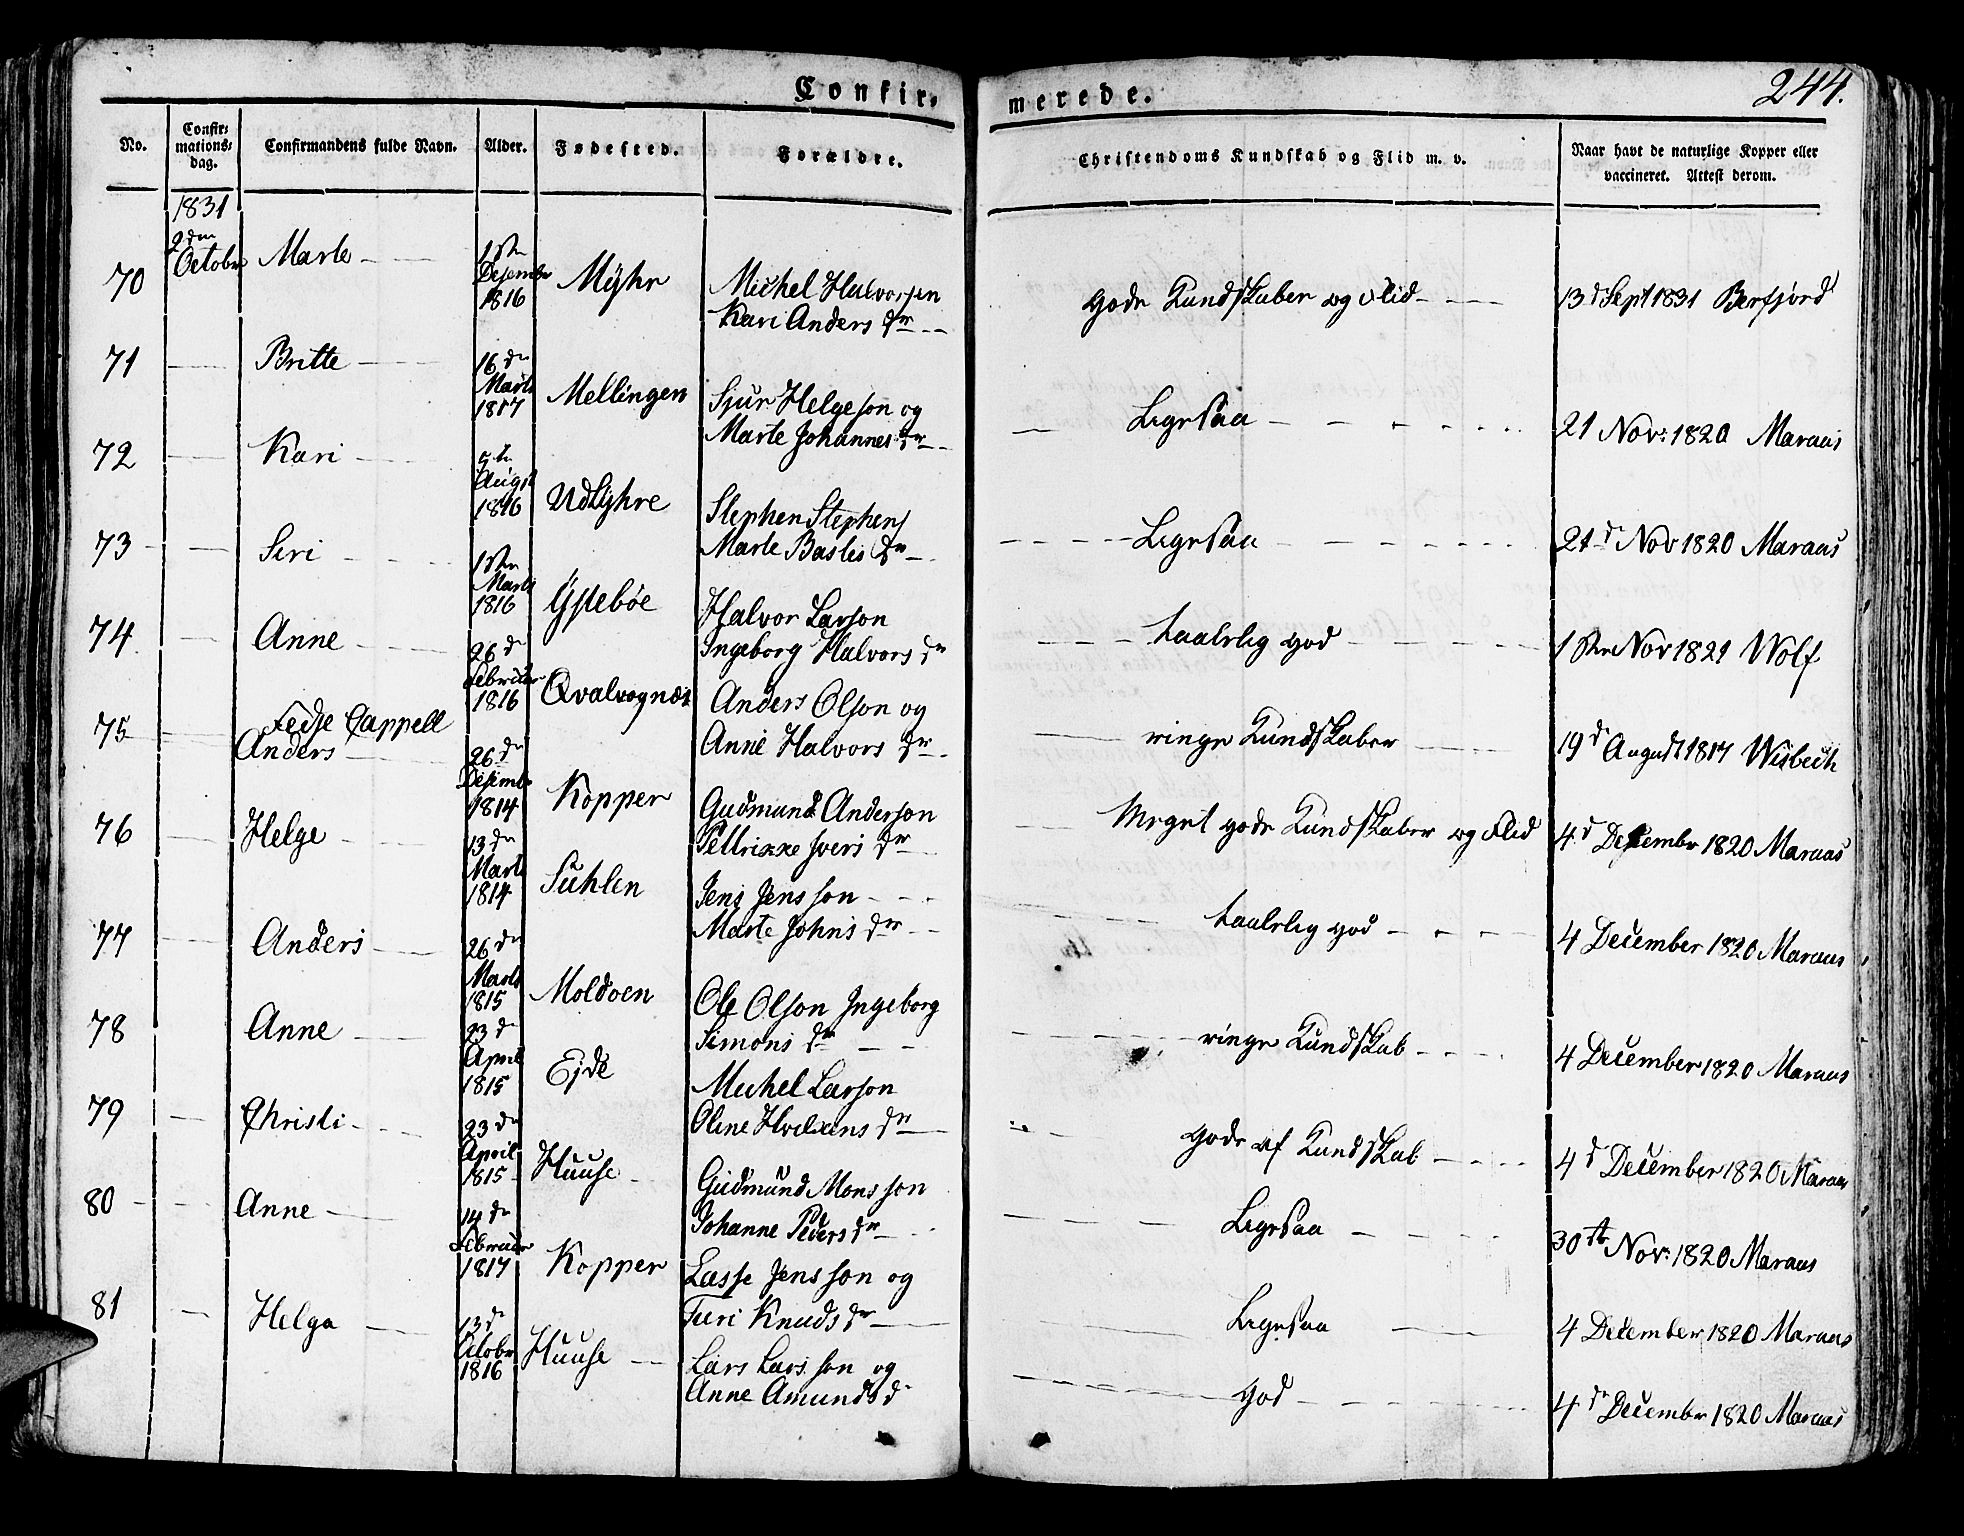 Confir-
merede.
244.
No.
Confir-
mations-
dag.
Confirmandens fulde Navn.
Alder.
Fødested.
Forældre.
Christendoms Kundskab og Flid m. v.
Naar havt de naturlige Kopper eller
vaccineret. Attest derom.
1831
70 2den Octobr Marte 1ste Desembr 1816 Myhr Michel Halvorsen
Kari Anders dr gode Kundskaber og Flid 13d Sept 1831 Berfjord
71 Britte 16de Marti 1817 Mellingen Sjur Helgeson og
Marte Johannes dr Ligesaa 21 Nov: 1820 Maraas
72 Kari Augst 1816 Udlyhre Stephen Stephens
Marte Basties dr Ligesaa 21d Nov 1820 Maraas
73 Siri 1ste Marti 1816 Ystebøe Halvor Larson
Ingeborg Halvors dr taalelig god 1ste Nov 1821 Wolf
74 Anne 26de Februar 1816 Qvalvognæs Anders Olson og
Anne Halvors dr ringe Kundskaber 19d August 1817 Wisbech
Fedje Cappell
75 Anders 26de Desembr 1814 Kopper Gudmund Anderson
Pettrikke Ivers dr Meget gode Kundskaber og Flid 4d Desembr 1820 Maraas
76 Helge 13de Marti 1814 Suhlen Jens Jensson
Marte Johns dr taalelig god 4 December 1820 Maraas
77 Anders 26de Marti 1815 Moldoen Ole Olson Ingeborg
Simons dr ringe Kundskab 4 December 1820 Maraas
78 Anne 23de April 1815 Ejde Michel Larson
Oline dr gode af Kundskab 4d December 1820 Maraas
79 Christi 23de April 1815 Huuse Gudmund Monsson
Johanne Peders dr Ligesaa 30te Nov: 1820 Maraas
80 Anne 14de Februar 1817 Kopper Lasse Jensson og
Turi Knuds dr Ligesaa 4 December 1820 Maraas
81 Helga 13de Octobr 1816 Huuse Lars Larsson og
Anne Amunds d god 4de Decembr 1820 Maraas